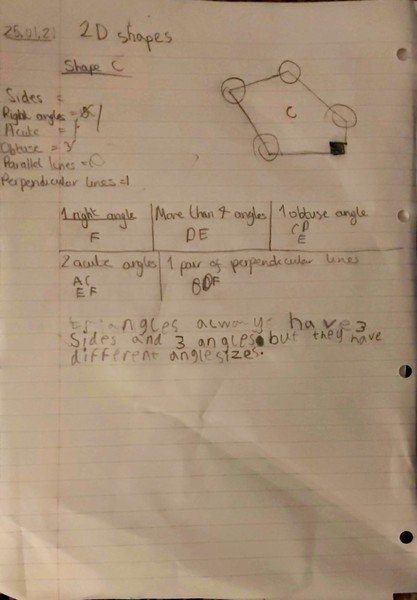 25.01.21
2D shapes
Shape C
Sides =
Right angles = 1
Acute =
Obtuse = 3
Parallel lines = 0
Perpendicular lines = 1
C
1 right angle
F
More than 4 angles
DE
1 obtuse angle
C D
E
2 acute angles
A C
E F
1 pair of perpendicular lines
F
angles always have 3
Sides and 3 angles but they have
different angle sizes.